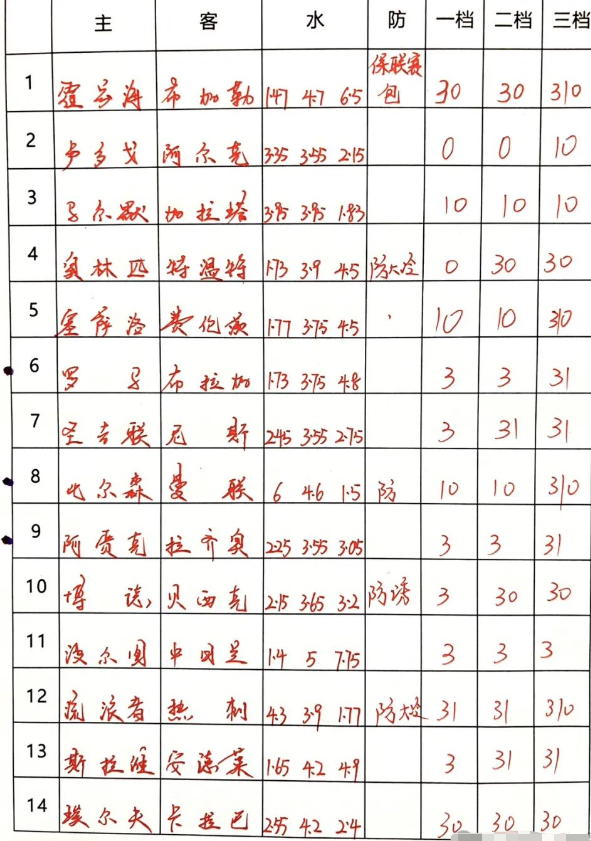 主 客 水 防 一档 二档 三档
1 霍芬海 布加勒 1.47 4.7 6.5 保联赛包 30 30 310
2 卡多戈 阿尔克 3.35 3.55 2.15 0 0 10
3 马尔默 加拉塔 3.95 3.95 1.83 10 10 10
4 奥林匹 特温特 1.73 3.9 4.5 防大冷 0 30 30
5 塞萨洛 费伦茨 1.77 3.75 4.5 10 10 310
6 罗马 布拉加 1.73 3.75 4.8 3 3 31
7 圣吉联 尼斯 2.45 3.55 2.75 3 31 31
8 比尔森 曼联 6 4.6 1.5 防 10 10 310
9 阿贾克 拉齐奥 2.25 3.55 3.05 3 3 31
10 博德 贝西克 2.15 3.65 3.2 防诱 3 30 30
11 波尔图 中日兰 1.4 5 7.75 3 3 3
12 流浪者 热刺 4.3 3.9 1.77 防大冷 31 31 310
13 斯拉维 安德莱 1.65 4.2 4.9 3 31 31
14 埃尔夫 卡拉巴 2.55 4.2 2.4 30 30 30